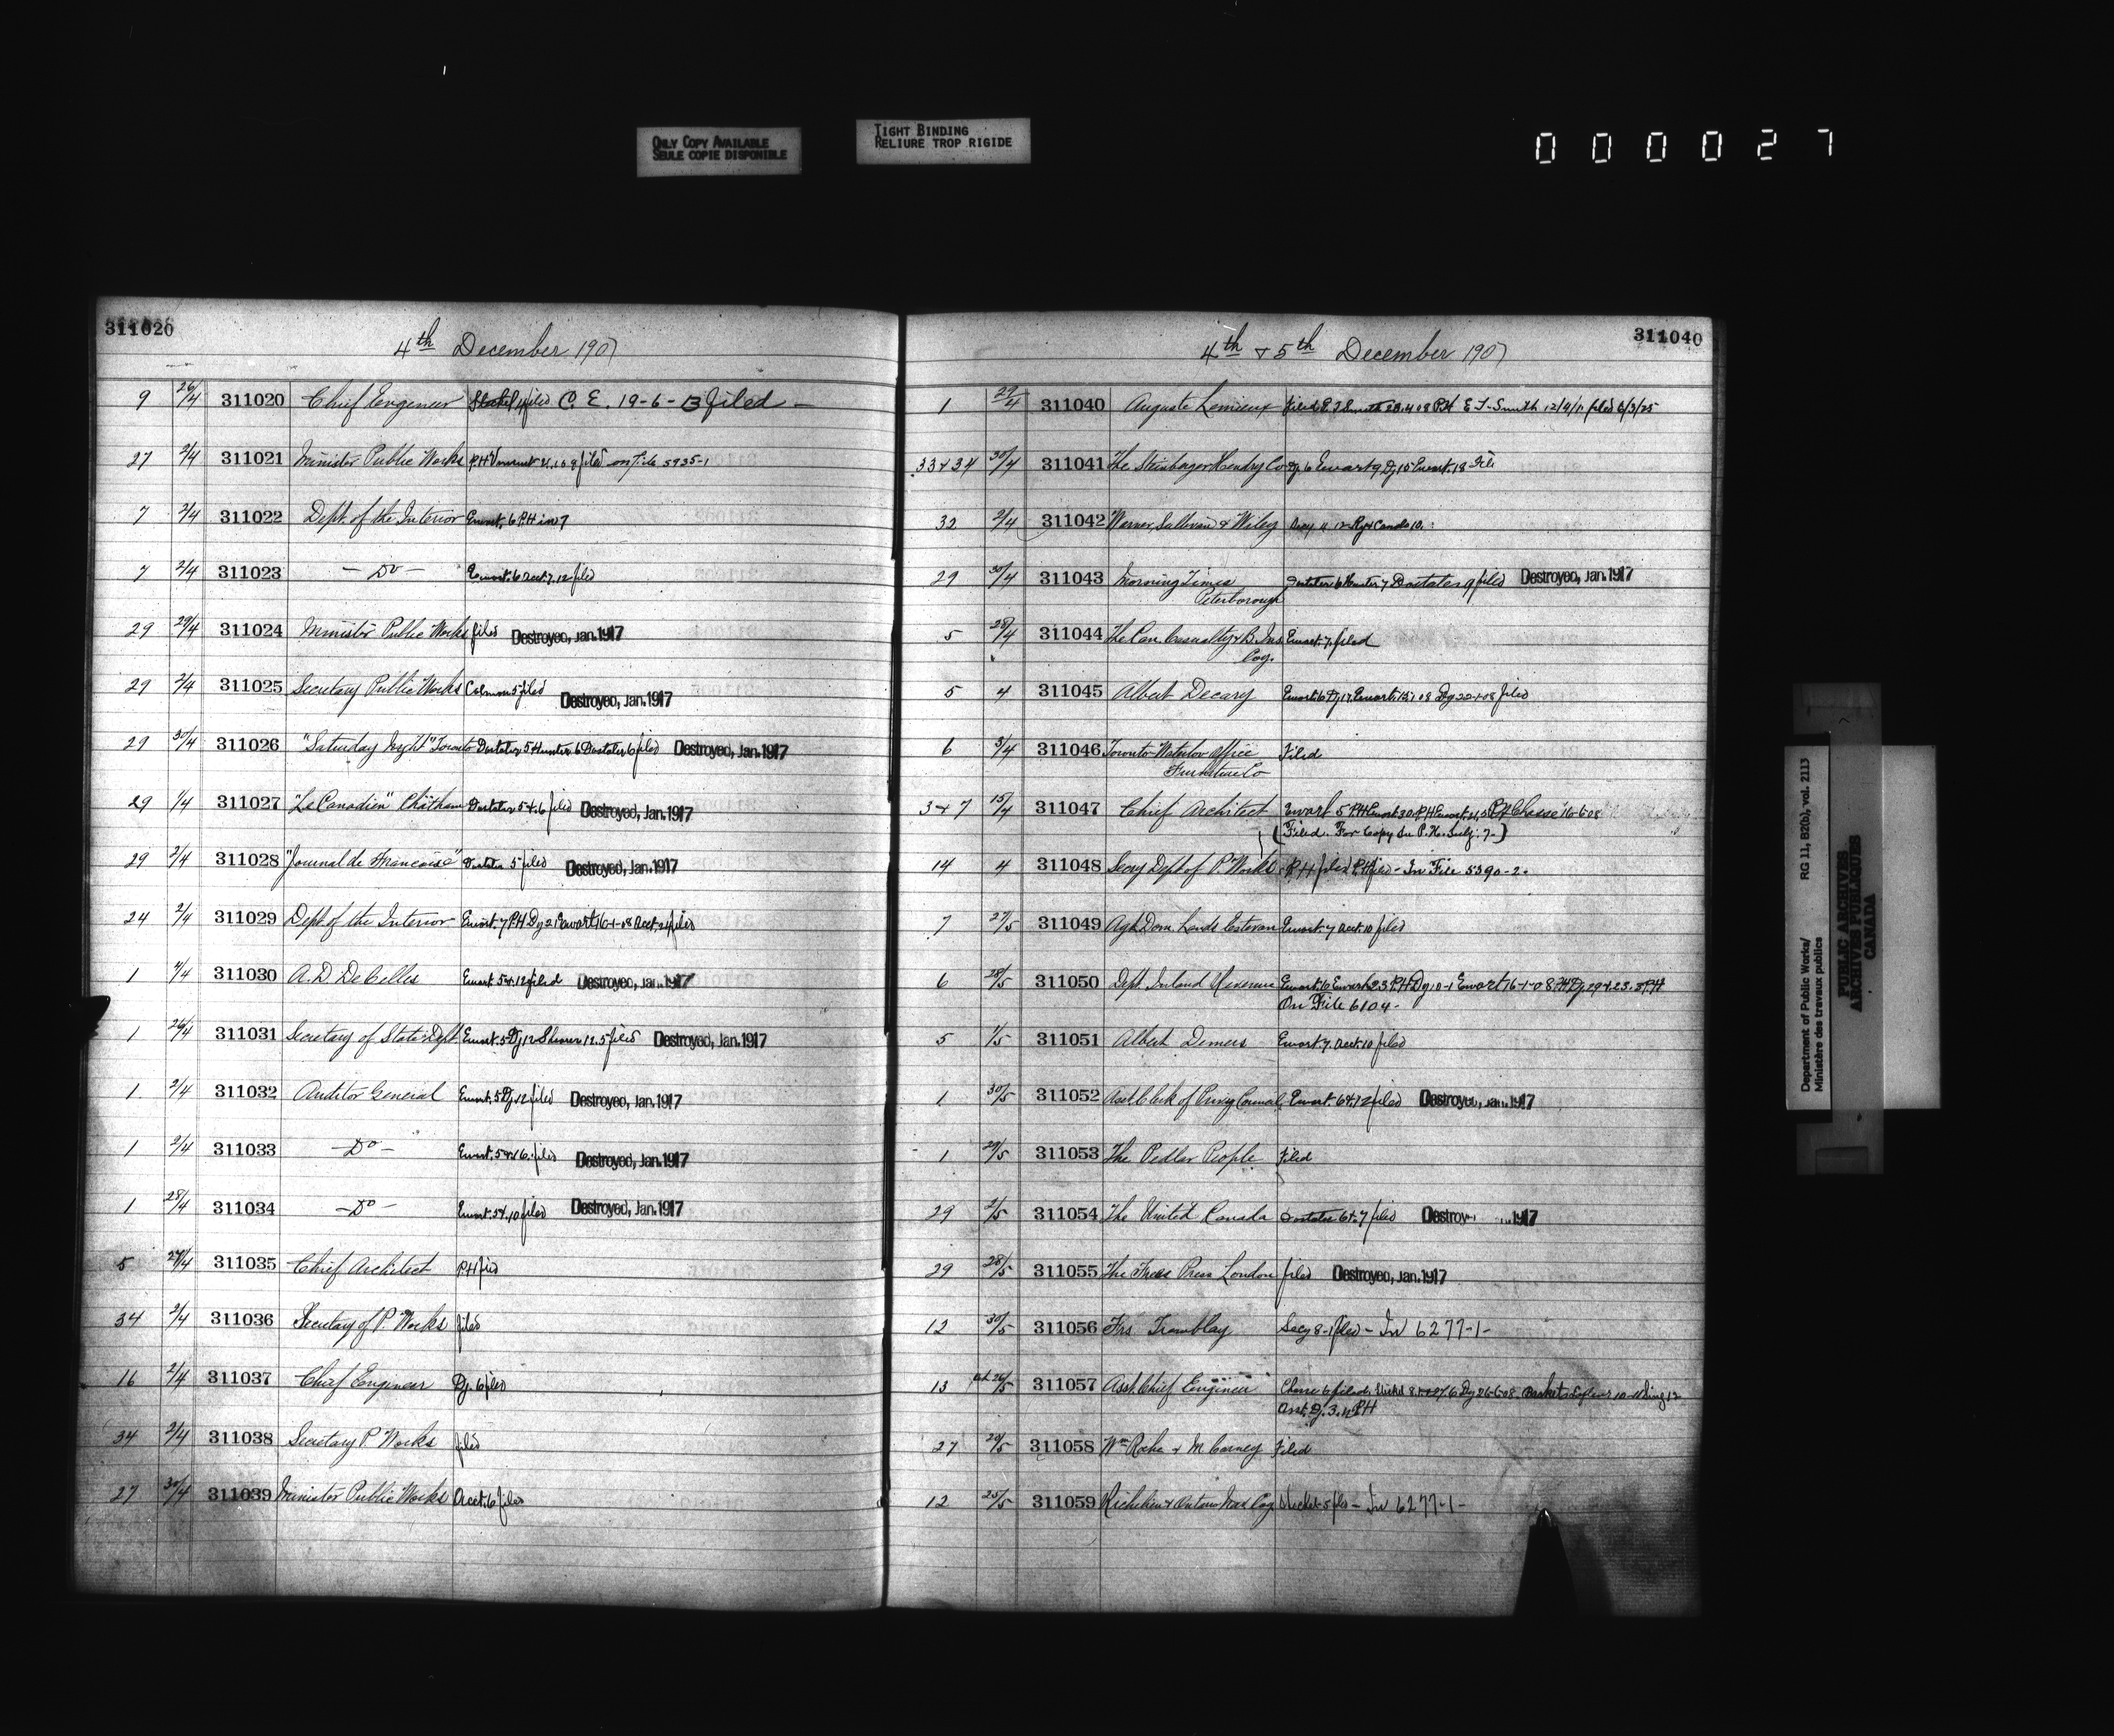 ONLY COPY AVAILABLE
SEULE COPIE DISPONIBLE
TIGHT BINDING
RELIURE TROP RIGIDE
000027
311020
4th December 1907
9 26/4 311020 Chief Engineer filed C. E. 19-6-13 filed -
27 2/4 311021 Minister Public Works filed on File 5935-1
7 2/4 311022 Dept. of the Interior Ewart. 6 P.H in 7
7 2/4 311023 - Do - Ewart. 6 acct. 7. 12 filed
29 29/4 311024 Minister Public Works filed Destroyed, Jan. 1917
29 2/4 311025 Secretary Public Works Colmon 5 filed Destroyed, Jan. 1917
29 30/4 311026 "Saturday Night" Toronto Dostater 5 Hunter 6 Dostater 6 filed Destroyed, Jan. 1917
29 1/4 311027 "Le Canadien" Chatham Dostater 5 & 6 filed Destroyed, Jan. 1917
29 2/4 311028 "Journal de Francoise" Dostater 5 filed Destroyed, Jan. 1917
24 2/4 311029 Dept of the Interior Ewart. 7 P.H Dy 21 Ewart 16-1-08 acct. 24 filed
1 4/4 311030 A. D. DeCelles Ewart 5 & 12 filed Destroyed, Jan. 1917
1 311031 Secretary of State Dept Ewart. 5 Dy 12 Shearer 12. 5 filed Destroyed, Jan. 1917
1 2/4 311032 Auditor General Ewart. 5 Dy. 12 filed Destroyed, Jan. 1917
1 2/4 311033 - Do - Ewart. 5 & 16. filed Destroyed, Jan. 1917
1 28/4 311034 - Do - Ewart. 5 & 10 filed Destroyed, Jan. 1917
5 27/4 311035 Chief Architect P.H filed
34 2/4 311036 Secretary of P. Works filed
16 2/4 311037 Chief Engineer Dy. 6 filed
34 2/4 311038 Secretary P Works filed
27 30/4 311039 Minister Public Works Acct. 6 filed
311040
4th & 5th December 1907
1 29/4 311040 Auguste Lemieux Filed E. T. Smith 28.4.08 P.H E. T. Smith 12/4/11 filed 6/3/25
33 & 34 30/4 311041 The Steinberger Hendry Co Dy. 6 Ewart 9 Dy 15 Ewart. 18 File
32 2/4 311042 Warner, Sullivan & Wiley
29 30/4 311043 Morning Times Dostater 6 Hunter 7 Dostater 9 filed Destroyed, Jan. 1917
Peterborough
5 28/4 311044 The Can. Casualty & B. Ins Ewart. 7. filed
Coy.
5 4 311045 Albert Decary Ewart. 6 Dy 17. Ewart. 15.1.08 Dy 22-1-08 filed
6 3/4 311046 Toronto Waterloo Office Filed
Furniture Co
3 & 7 15/4 311047 Chief Architect Ewart 5 P.H Ewart 30. P.H Ewart. 21, 5 P.H Chasse 16-6-08
(Filed. For Copy On P. H. Subj: 7-)
14 4 311048 Secy Dept of P. Works P.H filed P.H filed - In File 5390-2.
7 27/5 311049 Agt. Dom. Lands Estevan Ewart. 7 acct. 10 filed
6 28/5 311050 Dept. Inland Revenue Ewart. 10 Ewart 23 P.H Dy 10-1 Ewart 16-1-08 P.H Dy 29 & 23. 3 P.H
On File 6104-
5 1/5 311051 Albert Demers Ewart. 7. acct. 10 filed
1 30/5 311052 Asst Clerk of Privy Council Ewart. 6 & 12 filed Destroyed, Jan. 1917
1 29/5 311053 The Pedlar People Filed
29 2/5 311054 The United Canada Dostater 6 & 7 filed Destroy 1917
29 28/5 311055 The Free Press London filed Destroyed, Jan. 1917
12 30/5 311056 Frs Tremblay Secy 8-1 filed - In 6277-1-
13 26/5 311057 Asst. Chief Engineer Chasse 6 filed. Dy 26-6-08
Asst. Dy. 3. 11 P.H
27 29/5 311058 Wm Roche & M Carney Filed
12 25/5 311059 Richelieu & Ontario Nav Coy. filed - In 6277-1-
Department of Public Works/
Ministère des travaux publics
RG 11, B2(b), vol. 2113
PUBLIC ARCHIVES
ARCHIVES PUBLIQUES
CANADA